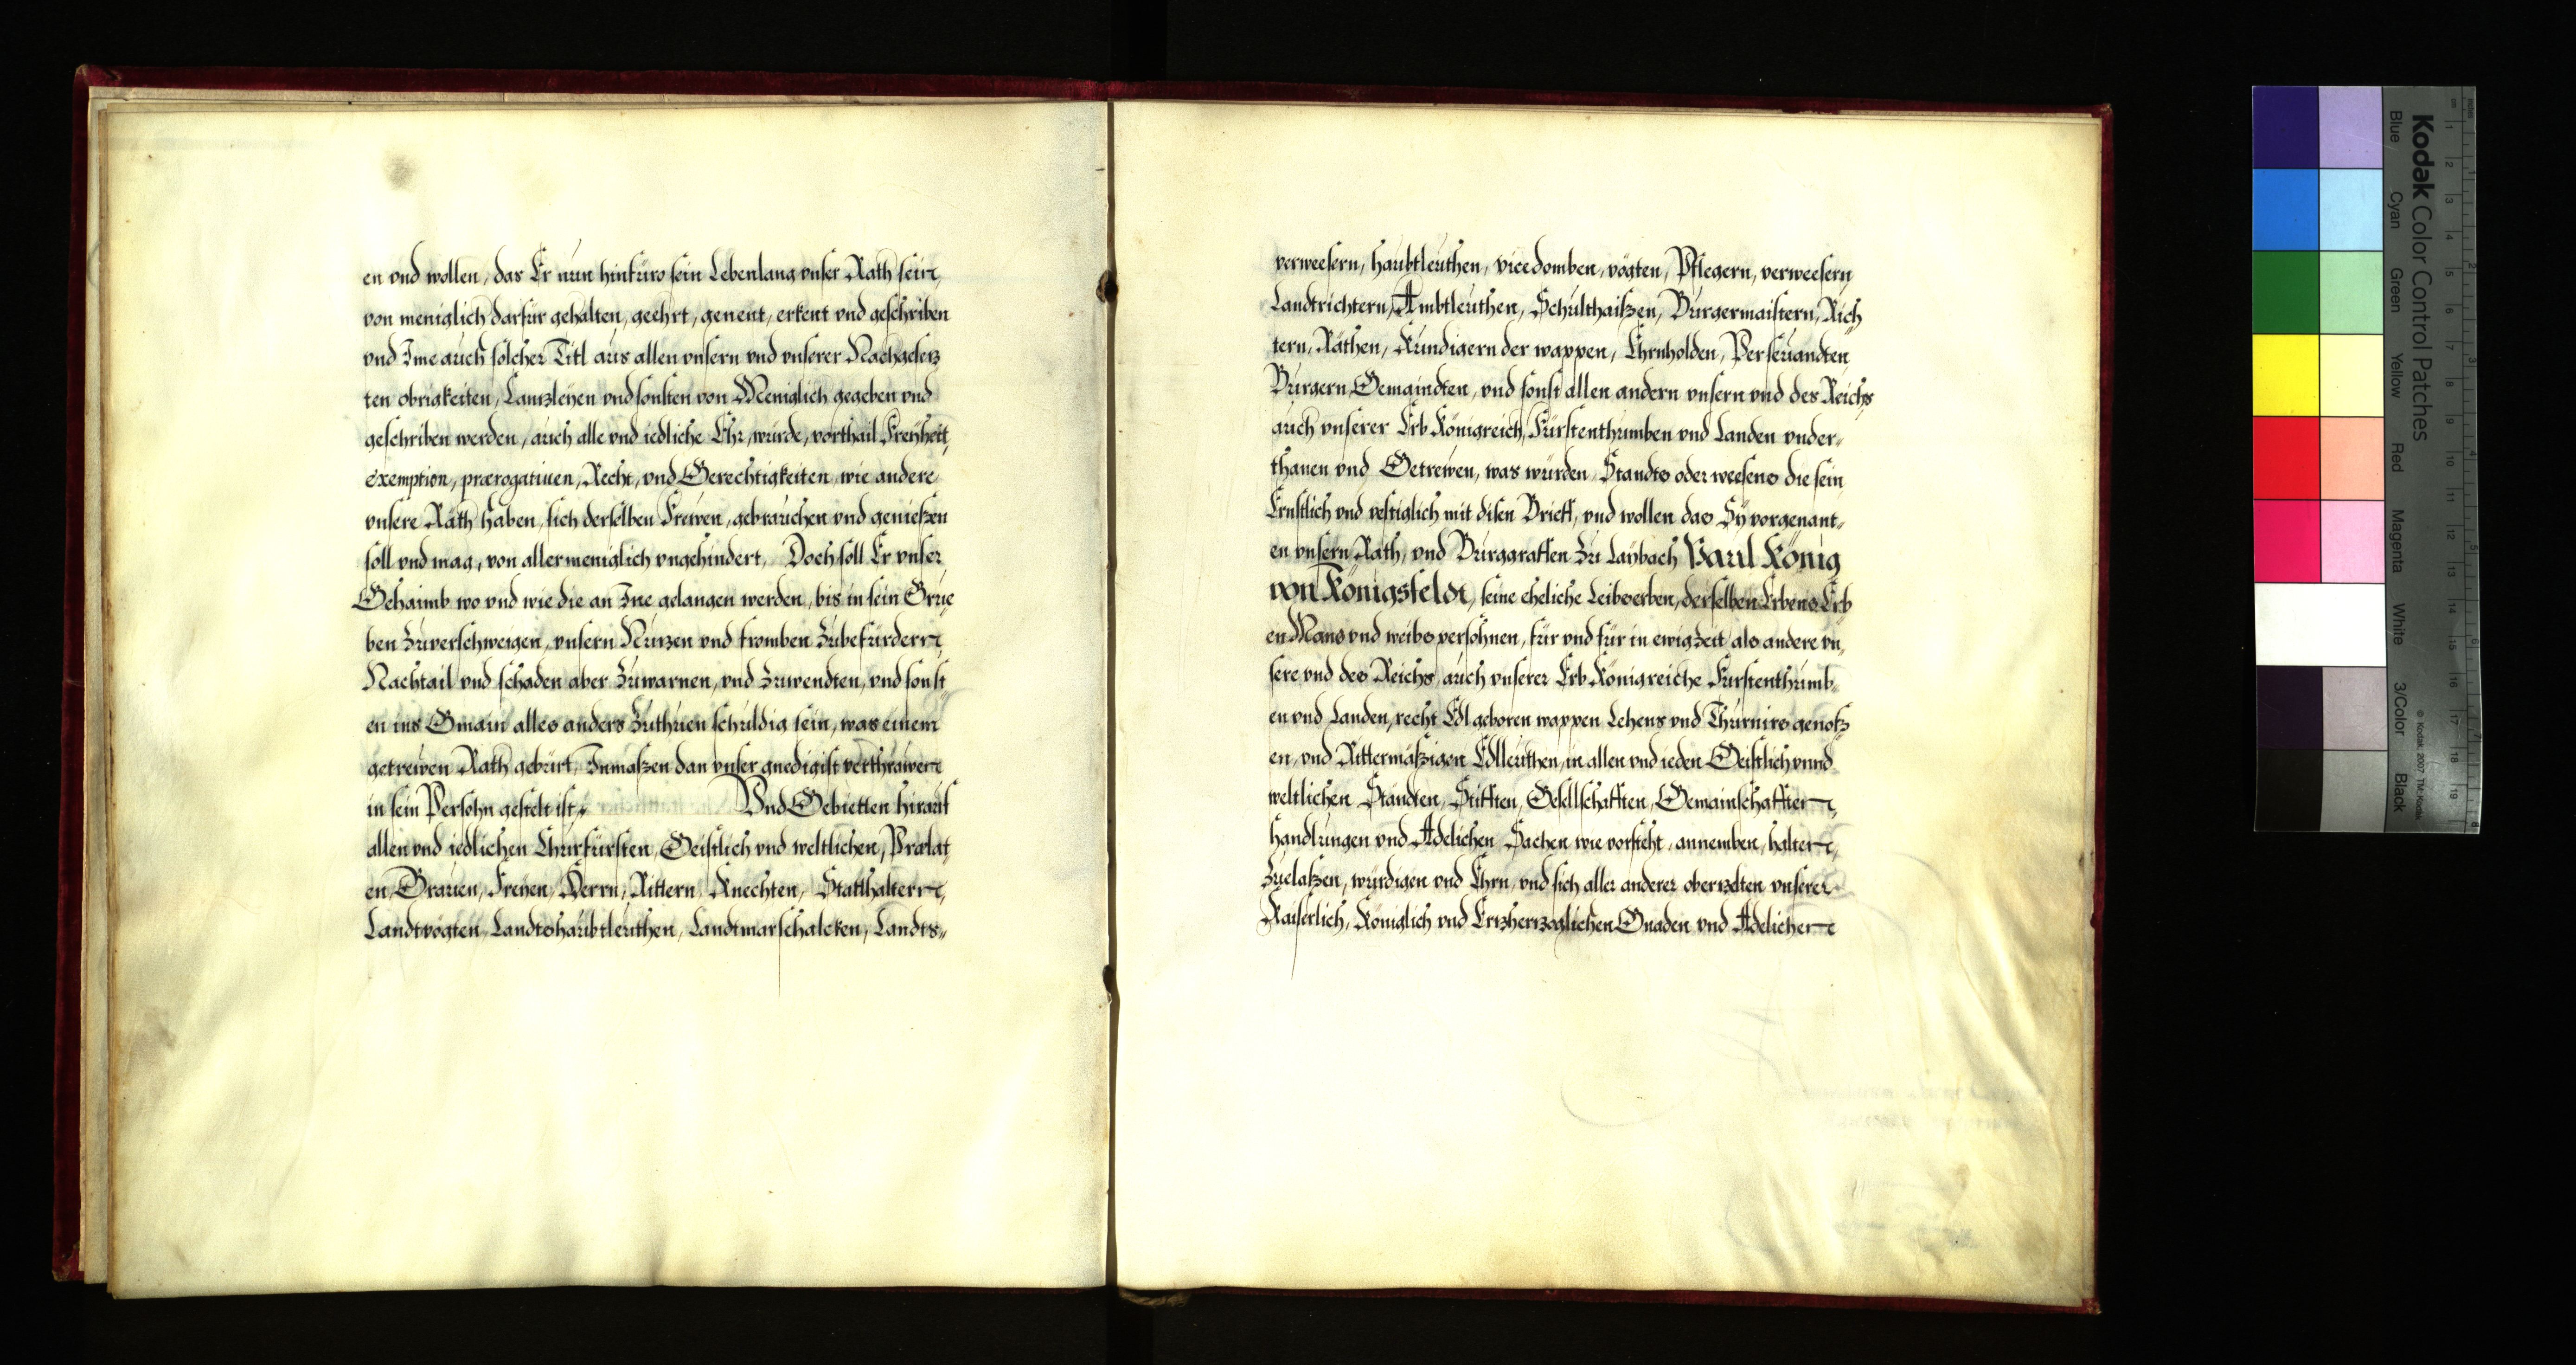 en vnd wollen, das Er nun hinfüro sein Lebenlang vnser Rath sein,
von meniglich darfür gehalten, geehrt, genent, erkent vnd geschriben
vnd Ime auch solcher Titl aus allen vnsern vnd vnserer Nachgesetz
ten obrigkeiten, Cantzleyen vnd sonsten von Meniglich gegeben vnd
geschriben werden, auch alle vnd iedliche Ehr, würde, vorthail Freyheit,
exemption, prærogatiuen, Recht, vnd Gerechtigkeiten, wie andere
vnsere Räth haben, sich derselben Frewen, gebrauchen vnd genießen
soll vnd mag, von allermeniglich vngehindert, Doch soll Er vnser
Gehaimb wo vnd wie die an Ine gelangen werden, bis in sein Grue
ben Zuuerschweigen, vnsern Nutzen vnd fromben Zubefürdern,
Nachtail vnd schaden aber Zuwarnen, vnd Zuwendten, vnd sonst
en ins Gmain alles anders Zuthuen schuldig sein, was einem
getrewen Rath gebürt, Inmaßen dan vnser gnedigist verthrawen
in sein Persohn gestelt ist, Vnd Gebietten hirauf
allen vnd iedlichen Churfürsten, Geistlich vnd weltlichen, Prælat
en, Grauen, Freyen, Herrn, Rittern, Knechten, Statthaltern,
Landtvögten, Landtshaubtleuthen, Landtmarschalcken, Landts-
verweesern, haubtleuthen, vicedomben, vögten, Pflegern, verweesern
Landtrichtern, Ambtleuthen, Schulthaißen, Burgermaistern, Rich
tern, Räthen, Kundigern der wappen, Ehrnholden, Perseuandten,
Burgern, Gemaindten, vnd sonst allen andern vnsern vnd des Reichs
auch vnserer Erb Königreich, Fürstenthumben vnd Landen vnder-
thanen vnd Getrewen, was würden, Standts oder weesens die sein
Ernstlich vnd vestiglich mit disen Brieff, vnd wollen das Sÿ vorgenant-
en vnsern Rath, vnd Burggraffen Zu Laybach Paul König
von Königsfeldt, seine eheliche Leibserben, derselben Erbens Erb
en Mans vnd weibs persohnen, für vnd für in ewig Zeit als andere vn,
sere vnd des Reichs, auch vnserer Erb Königreiche Fürstenthumb-
en vnd Landen, recht Edlgeboren wappen Lehens vnd Thurnirs genoß
en, vnd Rittermäßigen Edlleuthen, in allen vnd ieden Geistlich vnnd
weltlichen Ständten, Stifften, Gesellschafften, Gemainschafften,
handlungen vnd Adelichen Sachen wie vorsteht, annemben, halten,
Zuelaßen, würdigen vnd Ehrn, vnd sich aller anderer oberzelten vnserer
Kaiserlich, Königlich vnd Ertzhertzoglichen Gnaden vnd Adelichen
Kodak Color Control Patches
Blue Cyan Green Yellow Red Magenta White 3/Color Black
© Kodak, 2007 TM: Kodak